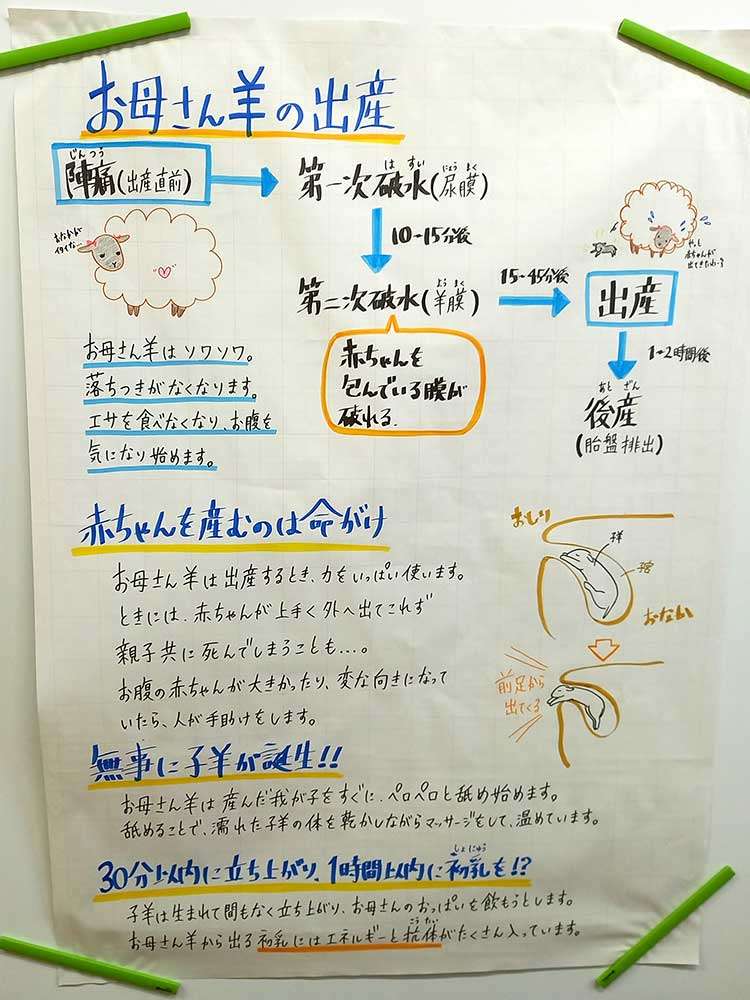 お母さん羊の出産
じんつう
陣痛(出産直前)
第一次破水(尿膜)
はすい
にょうまく
おなかが
イタイな…
10~15分後
第二次破水(羊膜)
ようまく
15~45分後
出産
やっと
赤ちゃんが
出てきたわ〜?
赤ちゃんを
包んでいる膜が
破れる.
1~2時間後
あとざん
後産
(胎盤排出)
お母さん羊はソワソワ。
落ちつきがなくなります。
エサを食べなくなり、お腹を
気になり始めます。
赤ちゃんを産むのは命がけ
お母さん羊は出産するとき、力をいっぱい使います。
ときには、赤ちゃんが上手く外へ出てこれず
親子共に死んでしまうことも…。
お腹の赤ちゃんが大きかったり、変な向きになって
いたら、人が手助けをします。
おしり
子羊
子宮
おなか
前足から
出てくる
無事に子羊が誕生!!
お母さん羊は産んだ我が子をすぐに、ペロペロと舐め始めます。
舐めることで、濡れた子羊の体を乾かしながらマッサージをして、温めています。
30分以内に立ち上がり、1時間以内に初乳を!?
しょにゅう
子羊は生まれて間もなく立ち上がり、お母さんのおっぱいを飲もうとします。
お母さん羊から出る初乳にはエネルギーと抗体がたくさん入っています。
こうたい